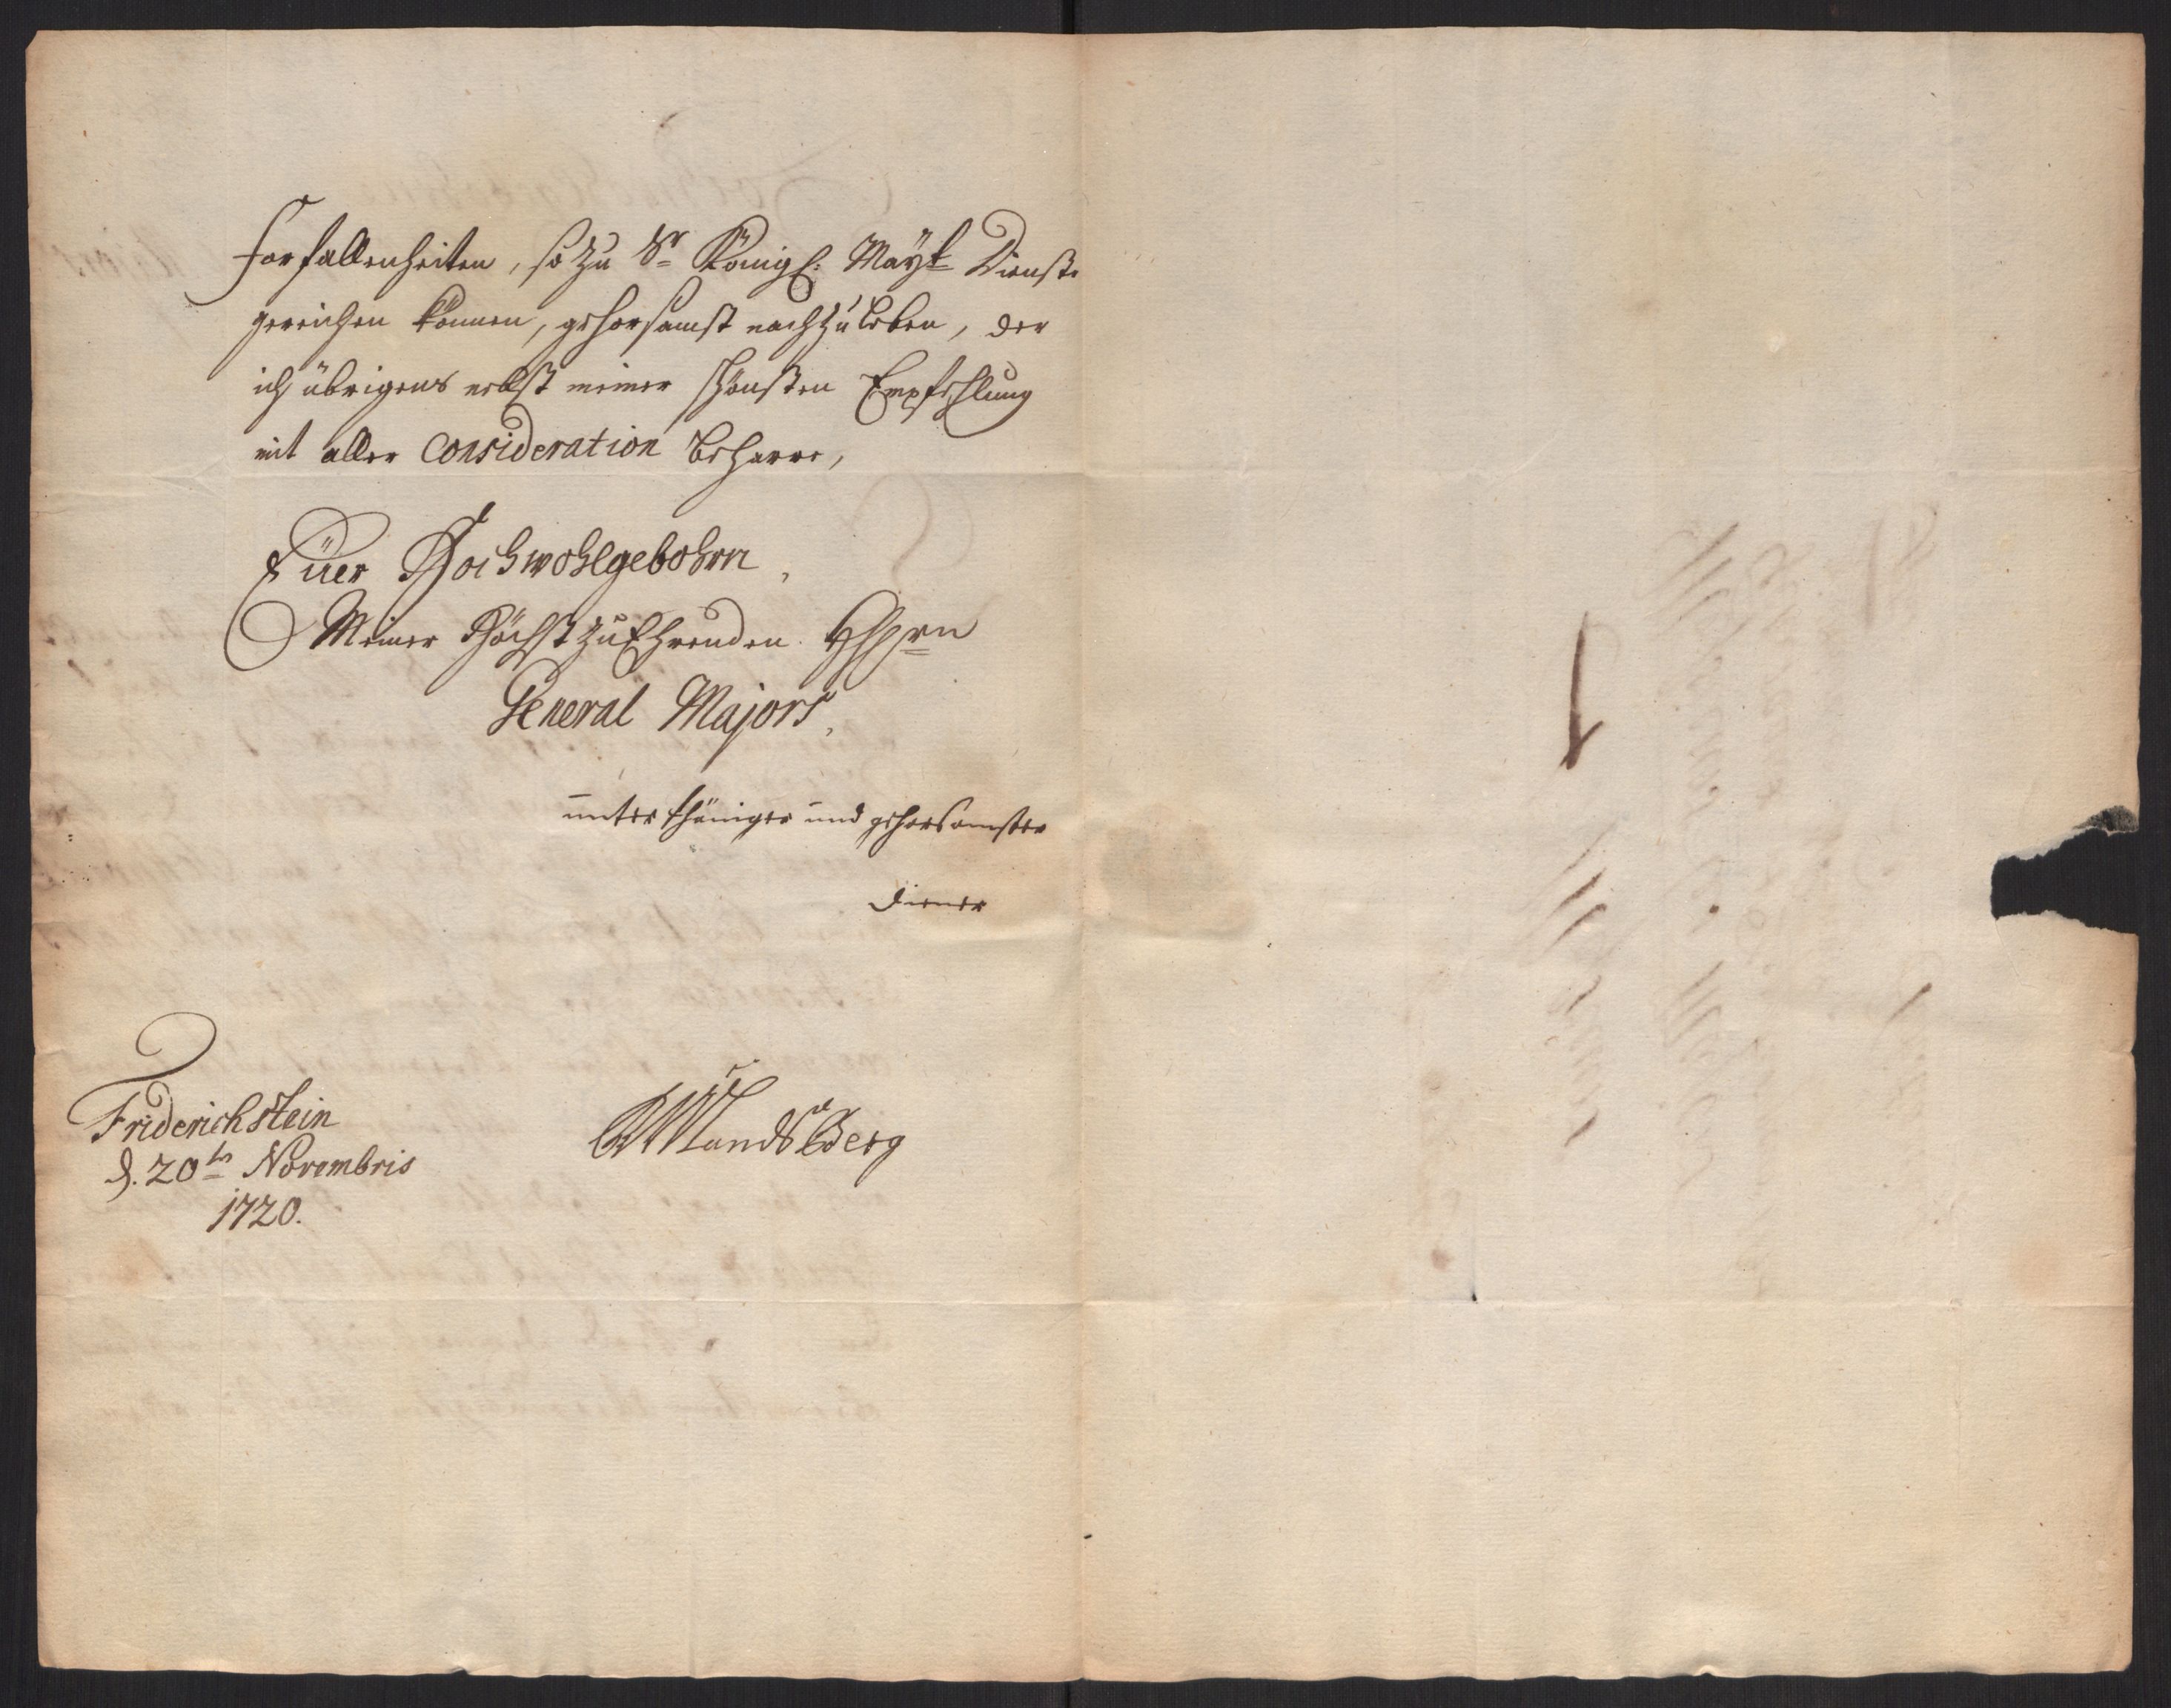 forfallenheiten, so zu Sr Königl: Mayt Dienste
gereichen können, gehorsamst nachzuleben, der
ich übrigens nebst meiner schönsten Empfehlung
mit aller consideration beharre,
Eüer Hochwohlgebohrn,
Meiner HöchstzuEhrenden Hhrrn
General Majors,
unterthäniger und gehorsamster
diener
Friderichstein
d. 20tn Novembris
1720.
Mandsberg